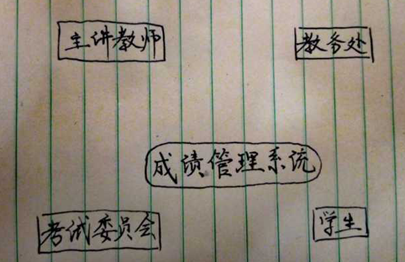 主讲教师
教务处
成绩管理系统
考试委员会
学生